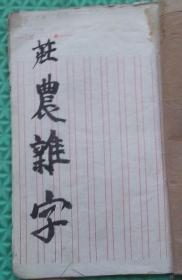 莊農雜字